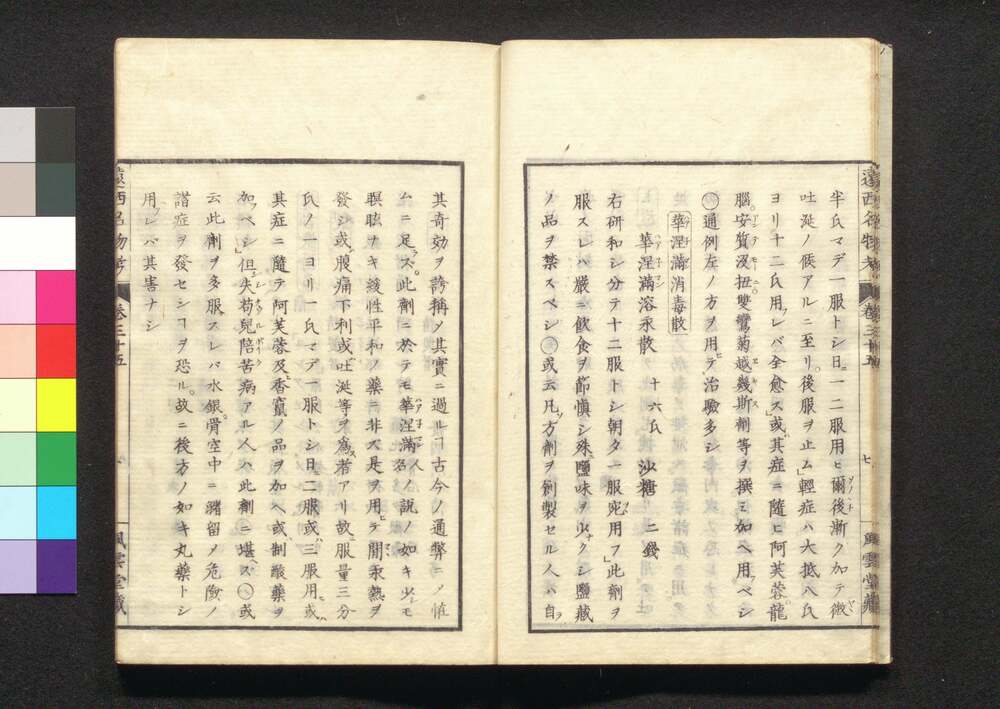 半氏マデ一服トシ日ニ一二服用ヒ爾後漸ク加テ微
吐涎ノ候アルニ至リ。後服ヲ止ム」輕症ハ大抵八氏
ヨリ十二氏用レバ全愈ス」或其症ニ隨ヒ阿芙蓉龍
腦安質没扭雙鸞菊越幾斯剤等ヲ撰ミ加ヘ用ベシ
○通例左ノ方ヲ用テ治驗多シ
華涅満消毒散
華涅満溶汞散 十六氏 沙糖 二錢
右研和シ分テ十二服トシ朝夕一服宛用フ」此劑ヲ
服スレハ嚴ニ飲食ヲ節慎シ殊ニ鹽味ヲ少クシ鹽藏
ノ品ヲ禁スベシ○或云凡ソ方劑ヲ創製セル人ハ自
遠西名物考 卷三十五 七 風雲堂藏
其奇効ヲ誇稱ノ其實ニ過ルコ古今ノ通弊ニノ恠
ムニ足ス。此劑ニ於テモ華涅満人名ノ説ノ如キ少モ
瞑眩ヲキ緩性平和ノ藥ニ非ス是ヲ用テ間汞熱ヲ
發シ或腹痛下利或吐涎等ヲ爲ス者アリ故ニ服量三分
氏ノ一ヨリ一氏マデ一服トシ日ニ二服或ハ三服用或
其症ニ隨テ阿芙蓉及香竄ノ品ヲ加ヘ或制酸藥ヲ
加フベシ」但失苟兒陪苦病アル人ハ此劑ニ堪ヘス○或
云此劑ヲ多服スレバ水銀。骨空中ニ瀦留ノ危險ノ
諸症ヲ發セシコヲ恐ル。故ニ後方ノ如キ丸藥トシ
用レバ其害ナシ
遠西名物考 卷三十五 風雲堂藏